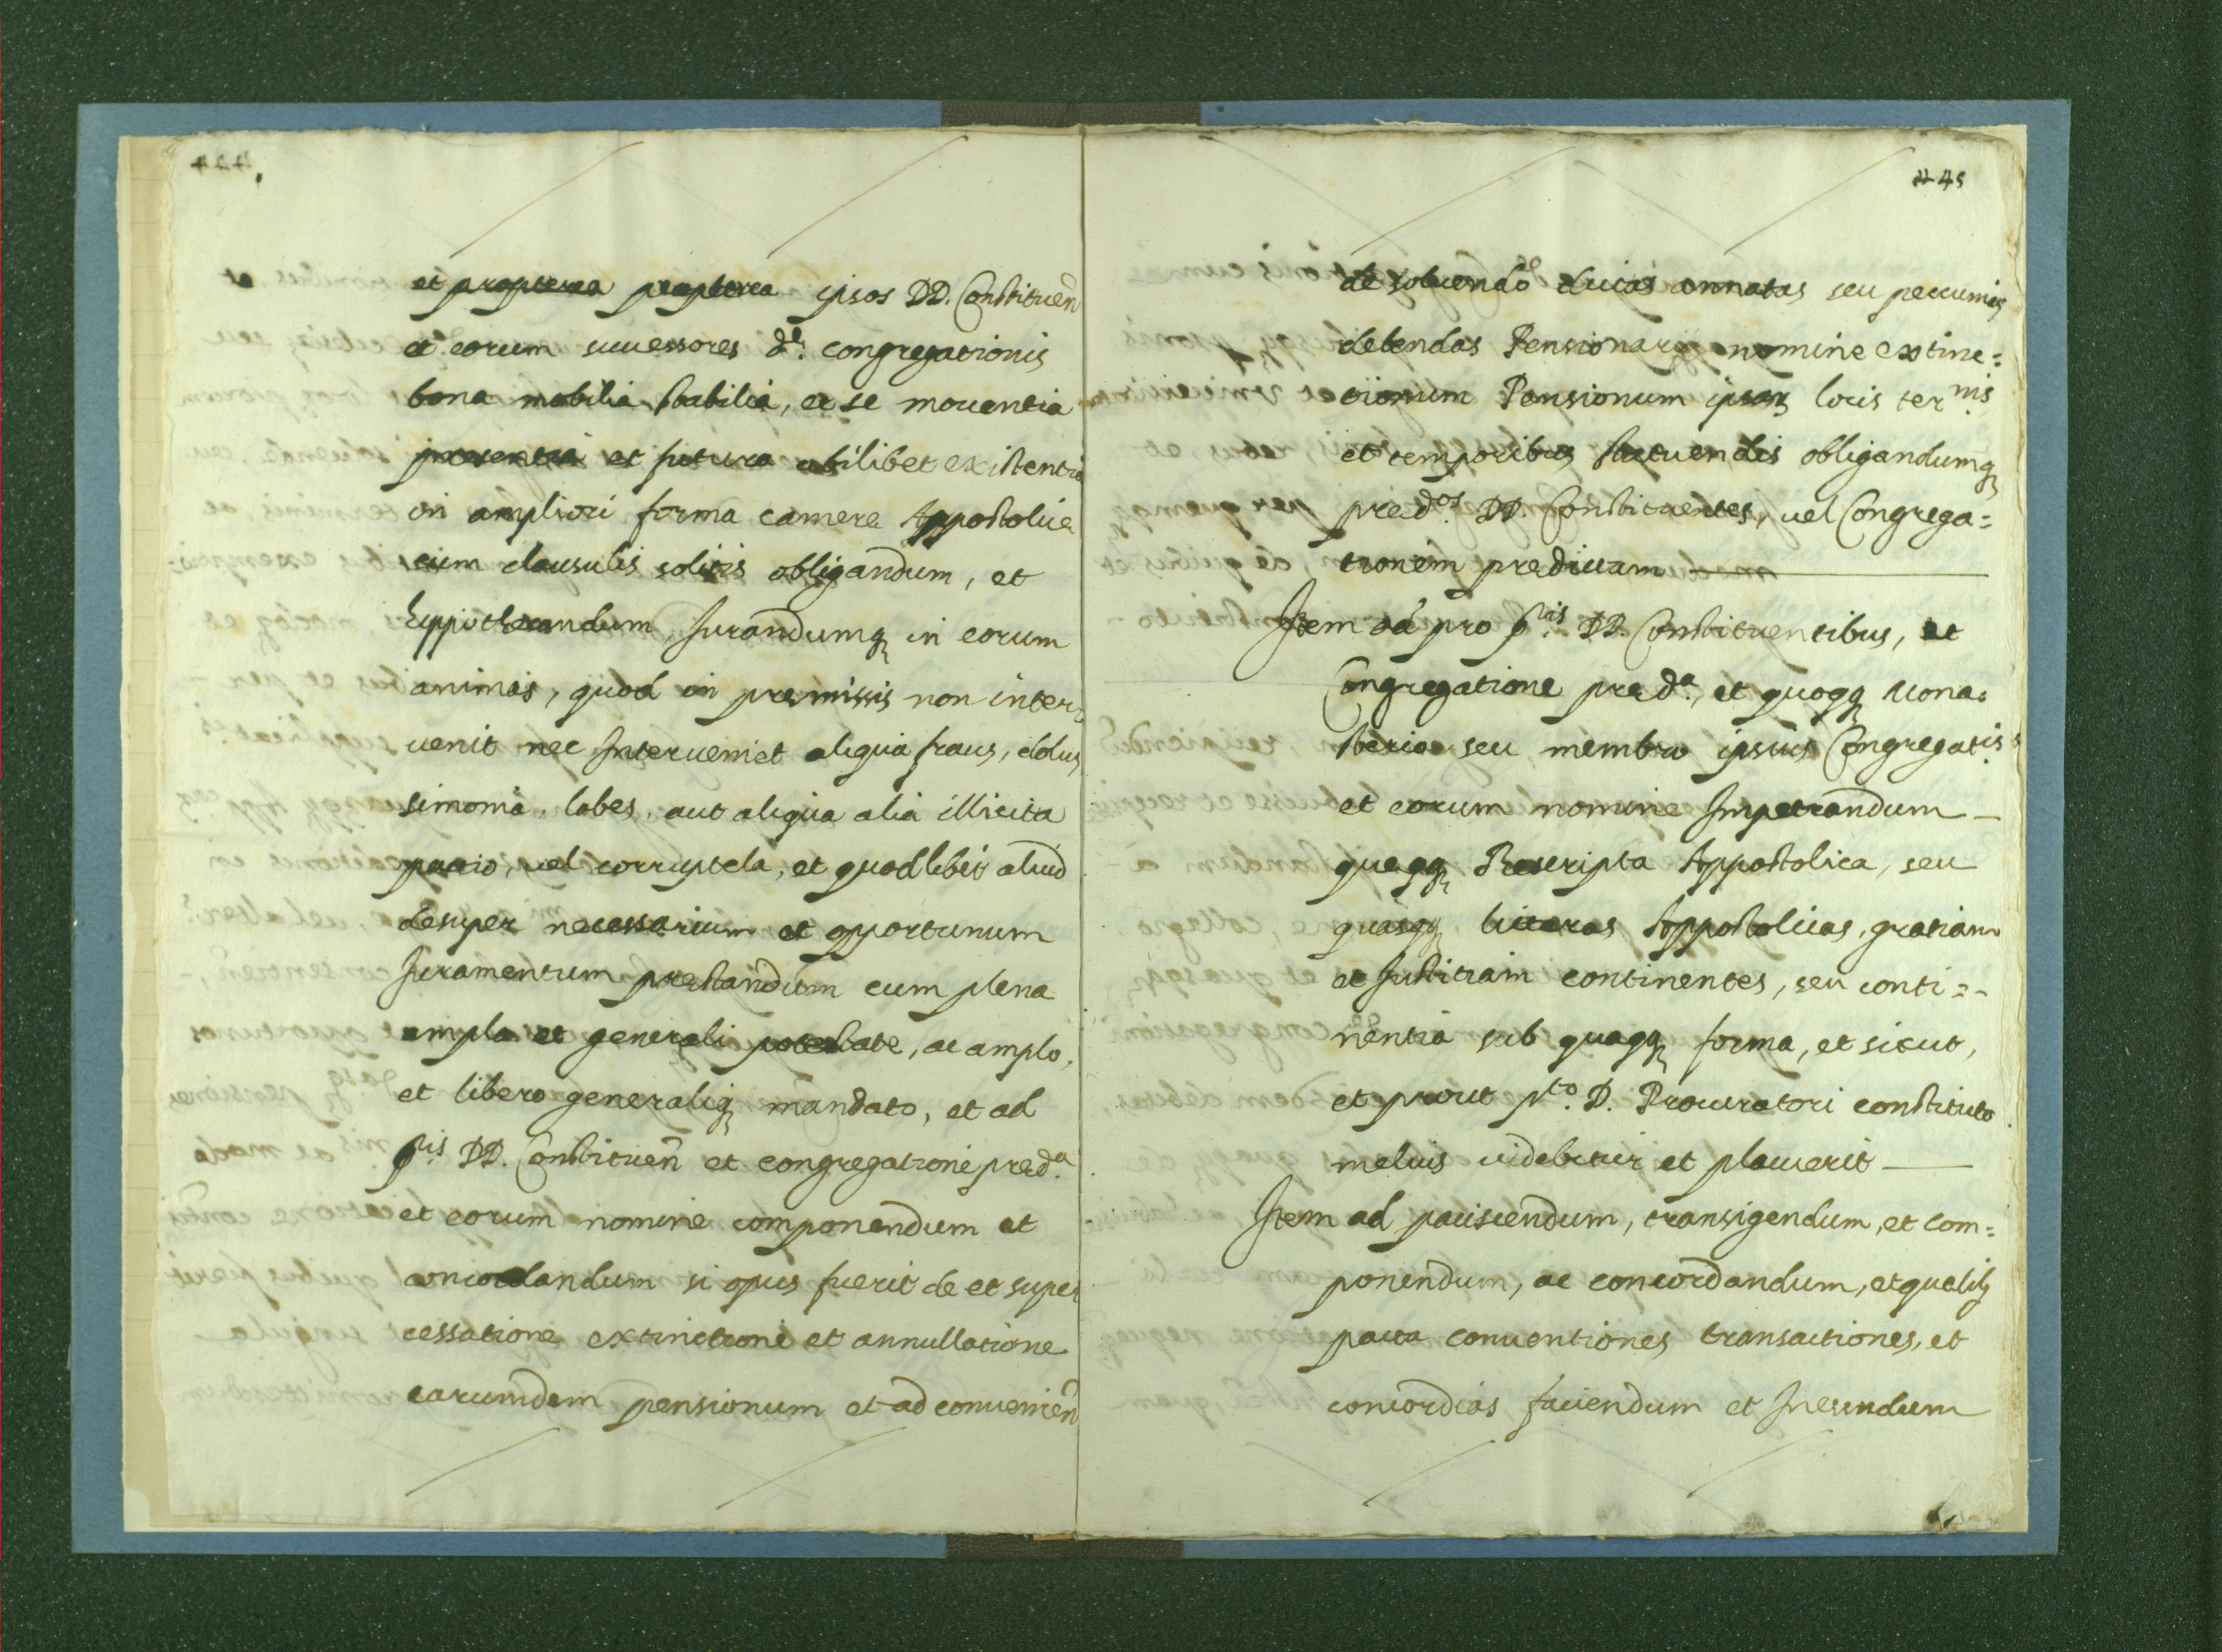 et propterea propterea ipsos DD. Constituen̄
et eorum successores de. congregationis
bona mobilia stabilia, et se mouentia
presentia et futura ubilibet existentia
in ampliori forma camere Appostolice
cum clausulis solitis obligandum, et
hyppothecandum, Jurandumq in eorum
animas, quod in premissis non inter=
uenit nec Interueniet aliqua fraus, dolus,
simonia, labes, aut aliqua alia illicita
pactio, uel corruptela, et quodlibet aliud
desuper necessarium et opportunum
Juramentum prestandum cum plena
ampla et generali potestate, ac amplo,
et libero generaliq mandato, et ad
ptis DD. Constituen̄ et congregatione preda.
et eorum nomine componendum et
concordandum si opus fuerit de et super
cessatione extinctione et annullatione
earumdem pensionum et ad conuenien̄
445
de soluendo ducas annatas seu peccunias
debendas Pensionarijs nomine extinc=
tionum Pensionum ipsarq locis termis.
et temporibus statuendis obligandumq
predos. DD. Constituentes, uel Congrega=
tionem predictam
Item ad pro ptis. DD. Constituentibus, et
Congregatione preda., et quoqq Mona=
sterio seu membro ipsius Congregatis.
et eorum nomine Impetrandum
queqq Rescripta Appostolica, seu
quasqq litteras Appostolicas, gratiam
et Justitiam continentes, seu conti=
nentia sub quaqq forma, et sicut,
et prout pto. D. Procuratori constituto
melius uidebitur et placuerit
Item ad paciscendum, transigendum, et com=
ponendum, ac concordandum, et quelibq
pacta conuentiones transactiones, et
concordias faciendum et Ineundum